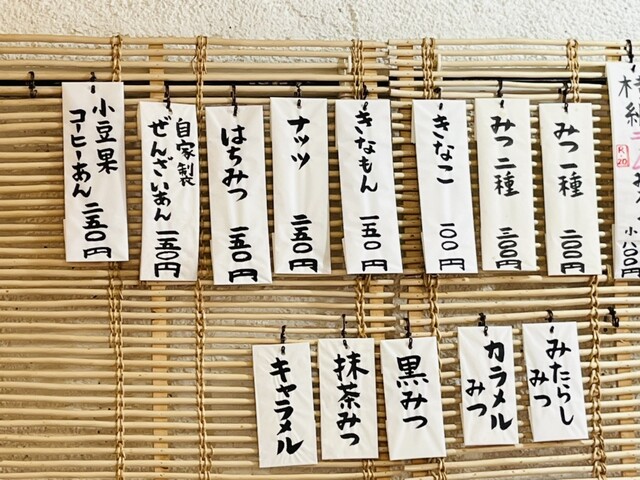 みつ一種 二〇〇円
みつ二種 三〇〇円
きなこ 一〇〇円
きなもん 一五〇円
ナッツ 二五〇円
はちみつ 一五〇円
自家製
ぜんざいあん 一五〇円
小豆果
コーヒーあん 二五〇円
みたらし
みつ
カラメル
みつ
黒みつ
抹茶みつ
キャラメル